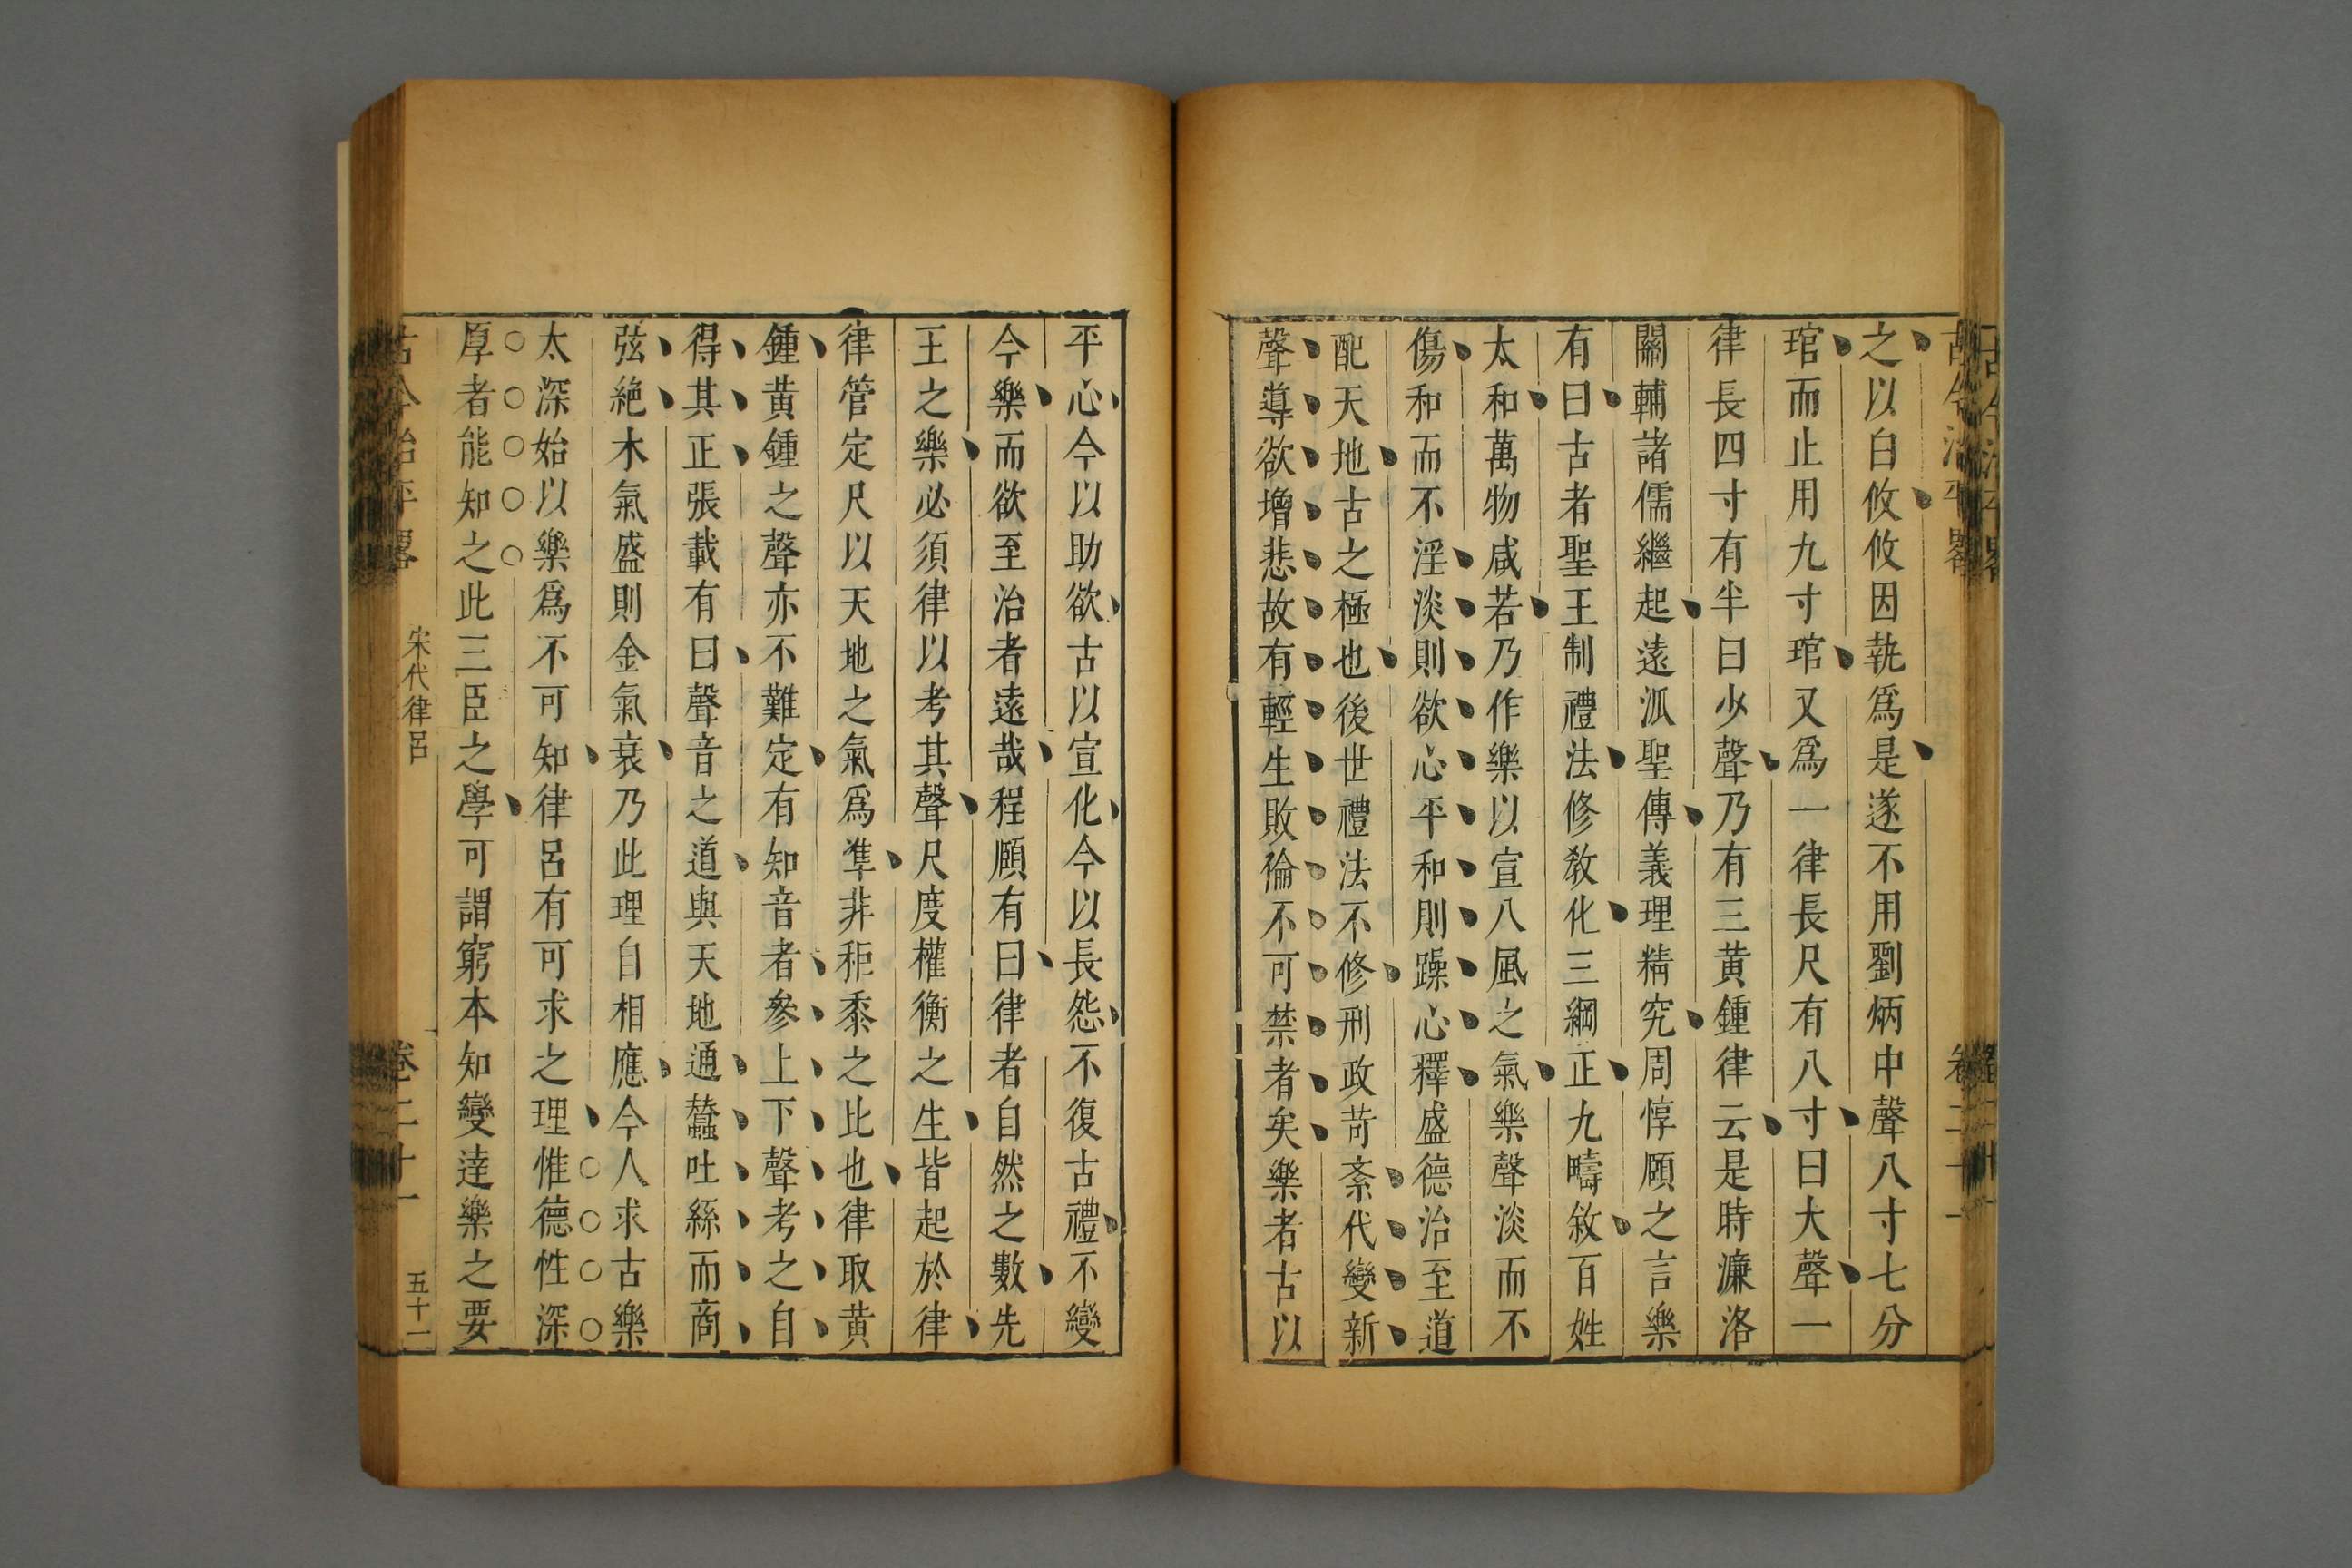 之以白攸攸因執爲是遂不用劉炳中聲八寸七分
琯而止用九寸琯又爲一律長尺有八寸曰大聲一
律長四寸有半曰少聲乃有三黄鍾律云是時濂洛
關輔諸儒繼起遠泒聖傳義理精究周惇頤之言樂
有曰古者聖王制禮法修教化三綱正九疇敘百姓
太和萬物咸若乃作樂以宣八風之氣樂聲淡而不
傷和而不淫淡則欲心平和則躁心釋盛德治至道
配天地古之極也後世禮法不修刑政苛紊代變新
聲導欲增悲故有輕生敗倫不可禁者矣樂者古以
平心今以助欲古以宣化今以長怨不復古禮不變
今樂而欲至治者遠哉程頤有曰律者自然之數先
王之樂必須律以考其聲尺度權衡之生皆起於律
律管定尺以天地之氣爲準非秬黍之比也律取黄
鍾黄鍾之聲亦不難定有知音者參上下聲考之自
得其正張載有曰聲音之道與天地通蠶吐絲而商
弦絶木氣盛則金氣衰乃此理自相應今人求古樂
太深始以樂爲不可知律呂有可求之理惟德性深
厚者能知之此三臣之學可謂窮本知變達樂之要
古今治平畧
宋代律呂
卷二十一
五十二